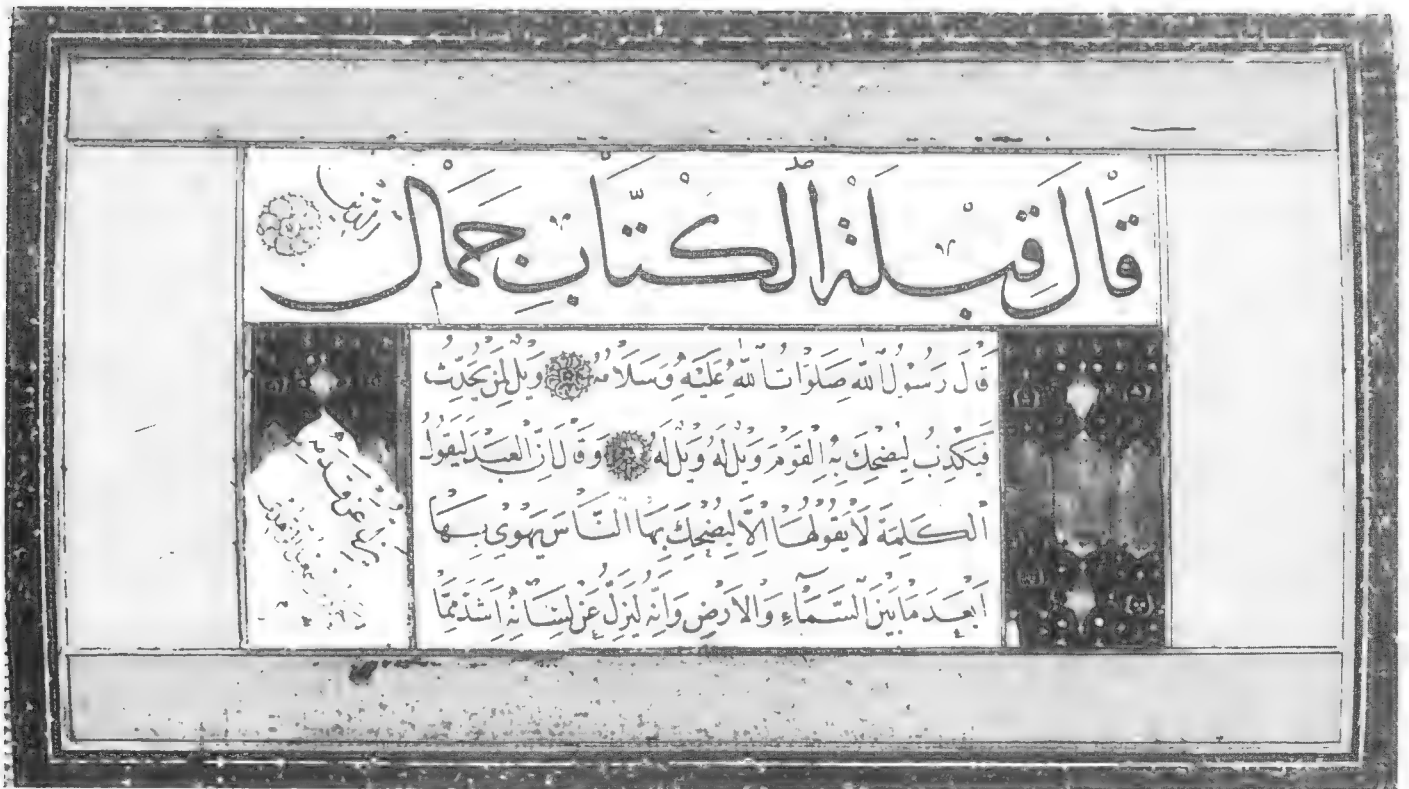 قَالَ قِبْلَةُ الْكُتَّابِ جَمَالُ الدِّين
قَالَ رَسُوْلُ اللّٰهِ صَلَوَاتُ اللّٰهِ عَلَيْهِ وَسَلَامُهُ وَيْلٌ لِمَنْ يُحَدِّثُ
فَيَكْذِبُ لِيُضْحِكَ بِهِ الْقَوْمَ وَيْلٌ لَهُ وَيْلٌ لَهُ وَقَالَ اِنَّ الْعَبْدَ لَيَقُوْلُ
الْكَلِمَةَ لَا يَقُوْلُهَا اِلَّا لِيُضْحِكَ بِهَا النَّاسَ يَهْوِيْ بِهَا
اَبْعَدَ مَا بَيْنَ السَّمَاءِ وَالْاَرْضِ وَاِنَّهُ لَيَزِلُّ عَنْ لِسَانِهِ اَشَدَّ مِمَّا
يَزِلُّ عَنْ قَدَمِهِ